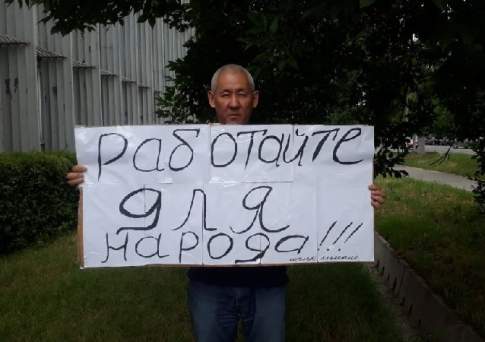 Работайте
для
народа!!!